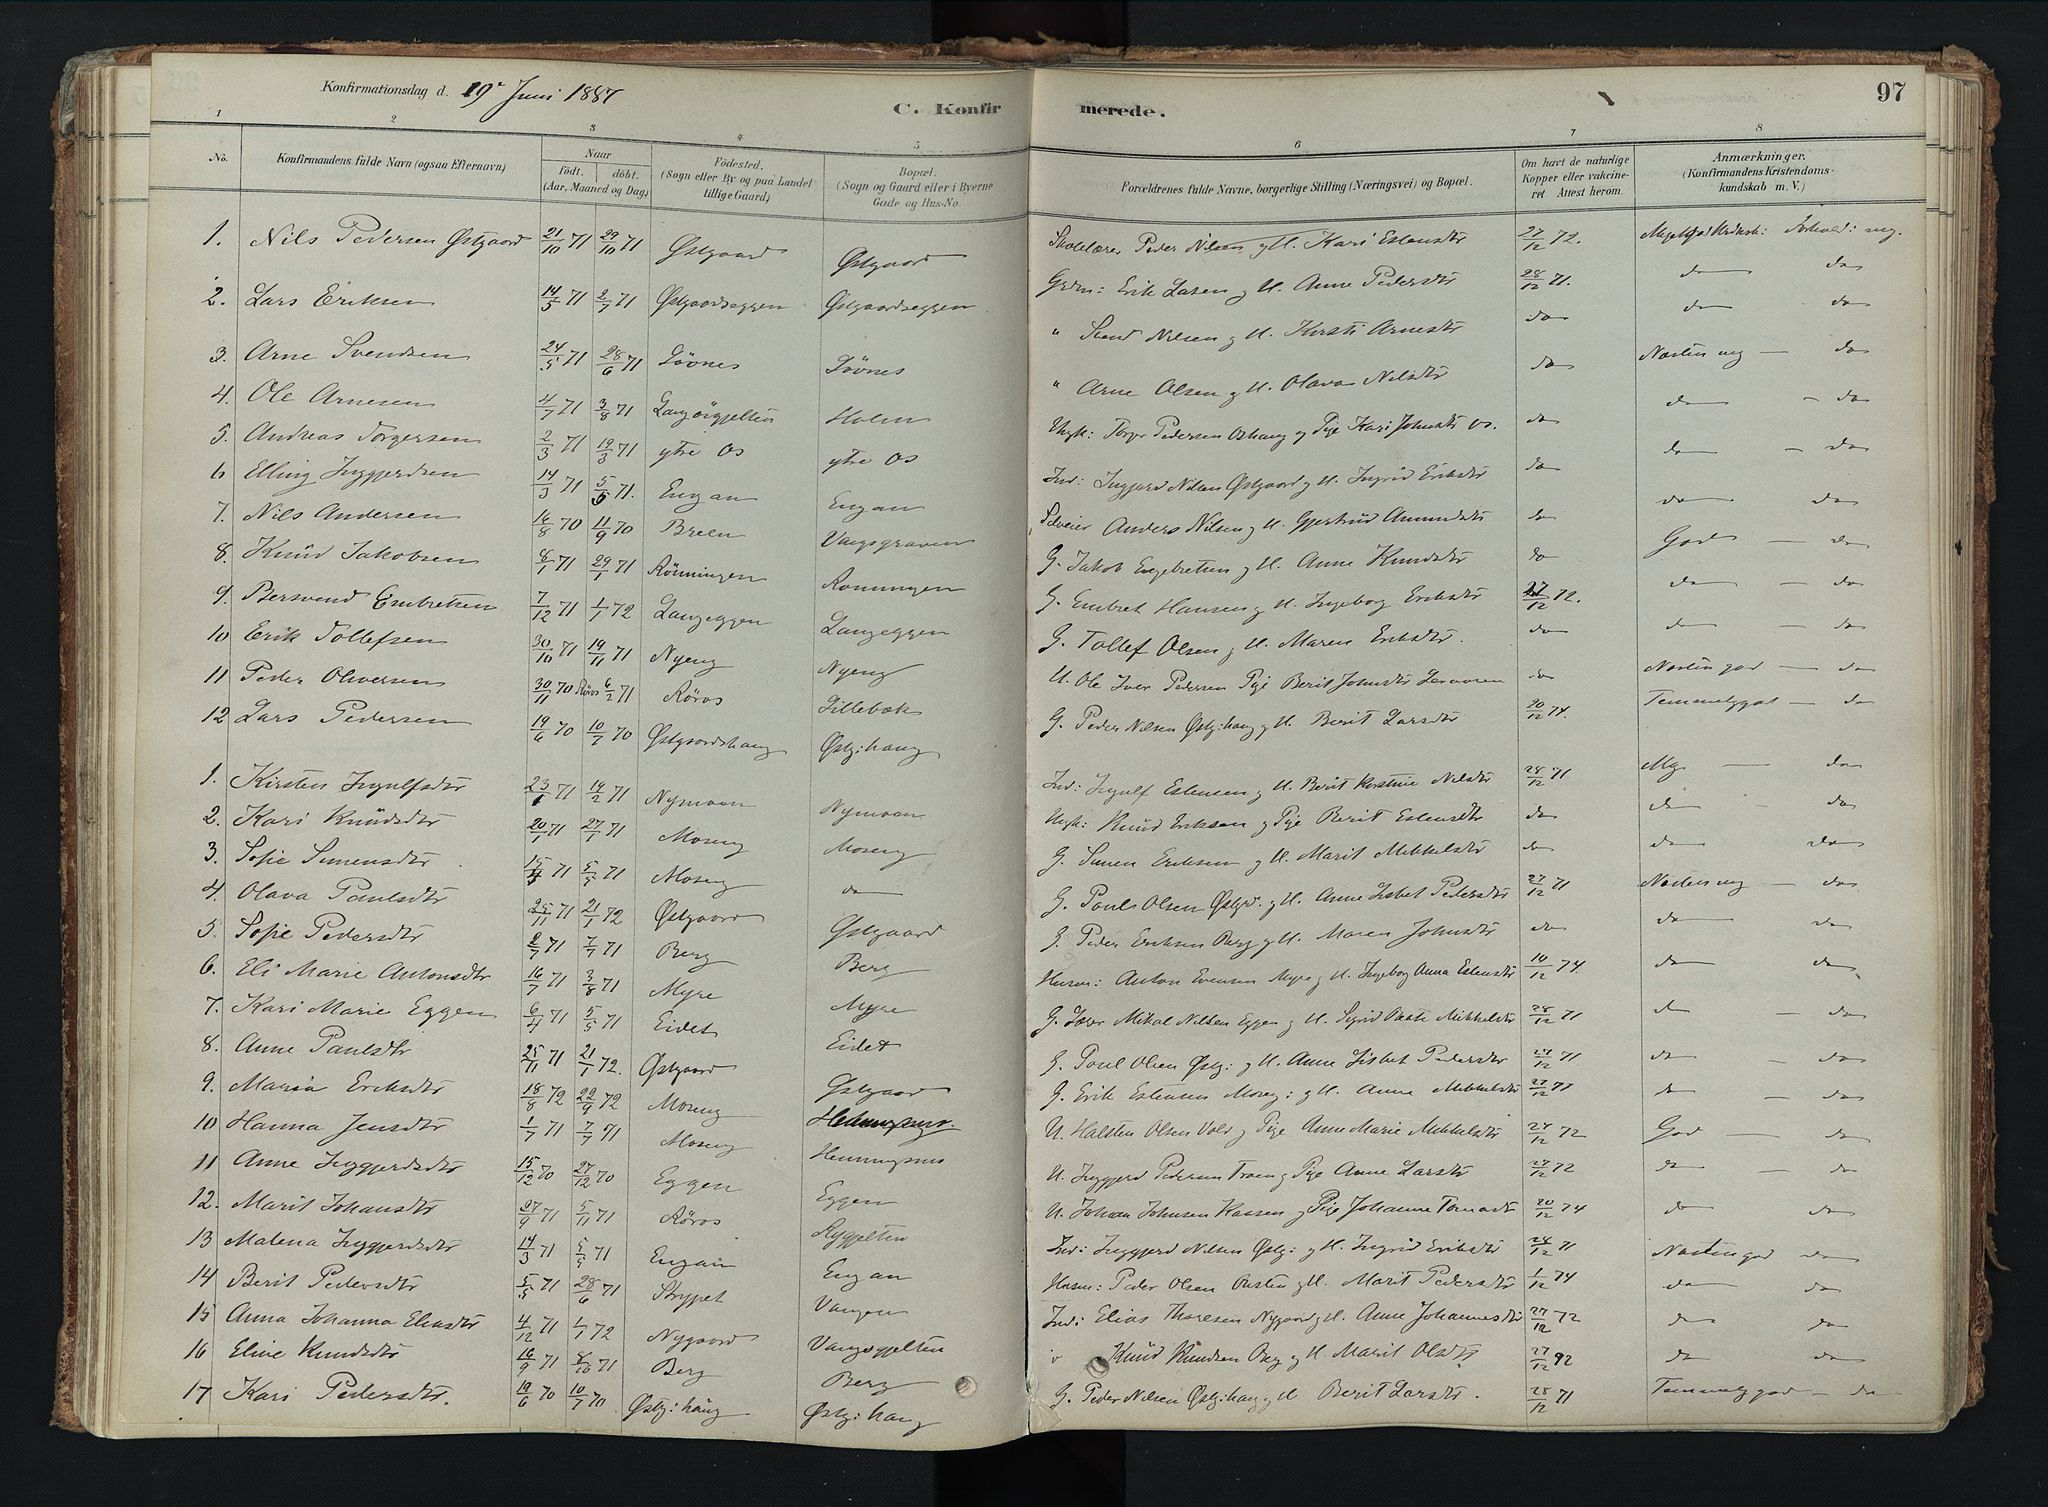 Konfirmationsdag d. 19de Juni 1887
C. Konfirmerede.
97
1 2 3 4 5 6 7 8
No. Konfirmandens fulde Navn (ogsaa Efternavn) Naar født. døbt. (Aar, Maaned og Dag) Fødested. (Sogn eller By og paa Landet tillige Gaard) Bopæl. (Sogn og Gaard eller i Byerne Gade og Hus-No. Forældrenes fulde Navne, borgerlige Stilling (Næringsvei) og Bopæl. Om havt de naturlige Kopper eller vakcineret. Attest herom. Anmærkninger. (Konfirmandens Kristendomskundskab m. V.)
1. Nils Pedersen Østgaard 21/10 71 29/10 71 Østgaard Østgaard Skolelærer Peder Nilsen og H. Kari Estensdtr 27/12 72.
2. Lars Eriksen 14/5 71 2/7 71 Østgaardseggen Østgaardseggen Grdm: Erik Larsen og H. Anne Pedersdtr 28/12 71. do do
3. Arne Svendsen 24/5 71 28/6 71 Løvnes Løvnes " Svend Nilsen og H. Kirsti Arnesdtr do do do
4. Ole Arnesen 4/7 71 3/8 71 Langørgjelten Holm " Arne Olsen og H. Olava Nilsdtr do Næsten mg do
5. Andreas Torgersen 2/3 71 19/3 71 ytre Os ytre Os Ungk: Torger Pedersen Oshaug og Pige Kari Johnsdtr Os. do do do
6 Elling Ingjerdsen 14/3 71 5/5 71. Engan Engan Ind: Ingjerd Nilsen Østgaard og H. Ingrid Eriksdtr do do do
7. Nils Andersen 16/8 70 11/9 70 Breen Vangsgraven Selveier Anders Nilsen og H. Gjertrud Amundsdtr do do do
8. Knud Jakobsen 8/1 71 29/1 71 Rønningen Rønningen G. Jakob Engebretsen og H. Anne Knudsdtr do God do
9. Bersvend Embretsen 7/12 71 1/1 72 Langeggen Langeggen G. Embret Hansen og H. Ingeborg Eriksdtr 27/12 72. do do
10 Erik Tollefsen 30/10 71 19/11 71 Nyeng Nyeng G. Tollef Olsen og H. Maren Eriksdtr. do do do
11 Peder Oliversen 30/11 70 Røros 6/2 71 Røros Lillebæk U. Ole Iver Pedersen Pige Berit Johnsdtr do Næsten god do
12 Lars Pedersen 19/6 70 10/7 70 Østgaardshaug Østg:haug G. Peder Nilsen Østg:haug og H. Berit Larsdtr 20/12 74. Temmelig god do
1. Kirsten Ingulfsdtr 23/1 71 19/2 71 Nymoen Nymoen Ind: Ingulf Estensen og H. Berit Kirstine Nilsdtr 28/12 71 Mg do
2. Kari Knudsdtr 20/1 71 27/1 71 Moseng Moseng Ungk: Knud Eriksen og Pige Berit Estensdtr do do do
3. Sofie Simensdtr 15/4 71 5/5 71 Moseng do G. Simen Eriksen og H. Marit Mikkelsdtr do do do
4. Olava Paulsdtr 25/11 71 21/1 72 Østgaard Østgaard G. Paul Olsen Østgrd. og H. Anne Lisbet Pedersdtr 27/12 71 Næsten mg do
5. Sofie Pedersdtr 2/7 71 7/7 71 Berg Berg G. Peder Eriksen Berg og H. Maren Johnsdtr do do do
6. Eli Marie Antonsdtr 16/7 71 3/8 71 Myre Myre Husm: Anton Evensen Myre og H. Ingeborg Anna Estensdtr 10/12 74. do do
7. Kari Marie Eggen 6/4 71 5/5 71 Eidet Eidet G. Lærer Mikal Nilsen Eggen og H. Sigrid Beate Mikkelsdtr 28/12 71 do do
8. Anne Paulsdtr 25/11 71 21/1 72. Østgaard Østgaard G. Paul Olsen Østg: og H. Anne Lisbet Pedersdtr 27/12 71 do do
9. Maria Eriksdtr 18/8 72 22/9 72 Moseng G. Erik Estensen Moseng: og H. Anne Mikkelsdtr 27/12 77 do do
10 Hanna Jensdtr 1/7 71 7/7 71 Moseng Hennigsmo U. Halsten Olsen Vols og Pige Anne Marie Mikkelsdtr 27/12 72 God do
11 Anne Ingjerdsdtr 15/12 70 27/12 70 Eggen Eggen U. Ingjerd Pedersen Troen og Pige Anne Larsdtr 27/12 72 do do
12. Marit Johansdtr 27/9 71 5/11 71 Røros Rygjelten U. Johan Johnsen Kaasen og Pige Johanne Tomasdtr 20/12 74 do do
13 Malena Ingjerdsdtr 14/3 71 5/5 71 Engan Engan Ind: Ingjerd Nilsen Østg: og H. Ingrid Eriksdtr 28/12 71 Næsten god do
14 Berit Pedersdtr 5/5 71 28/6 71 Strypet Vangen Husm: Peder Olsen og H. Marit Pedersdtr 1/12 74 do do
15 Anna Johanna Eliasdtr 4/12 71 1/1 72 Nygaard Vangsgjelten Ind: Elias Thoresen Nygaard og H. Anne Johannesdtr 27/12 72 do do
16 Eline Knudsdtr 16/9 71 8/10 71 Berg Berg Knud Knudsen Berg og H. Marit Olsdtr 27/12 92 do do
17 Kari Pedersdtr. 19/6 70 10/7 70 Østg:haug Østg:haug G. Peder Nilsen Østg:haug og H Berit Larsdtr. 28/12 71 Temmelig god do